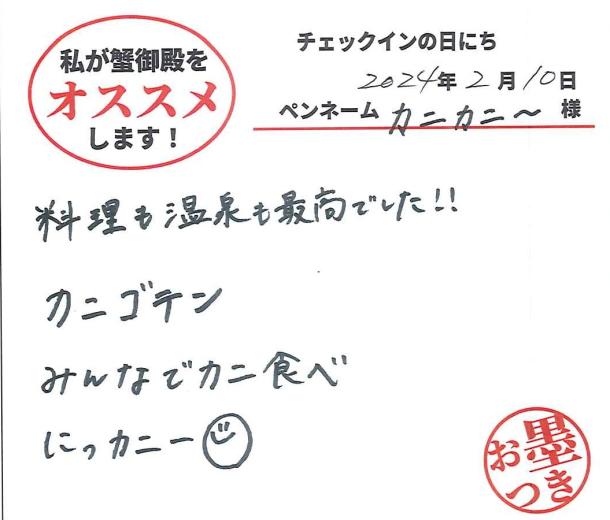 私が蟹御殿を
オススメ
します！
チェックインの日にち
2024年2月10日
ペンネーム カニカニ〜 様
料理も温泉も最高でした!!
カニゴテン
みんなでカニ食べ
にっカニー
お墨つき